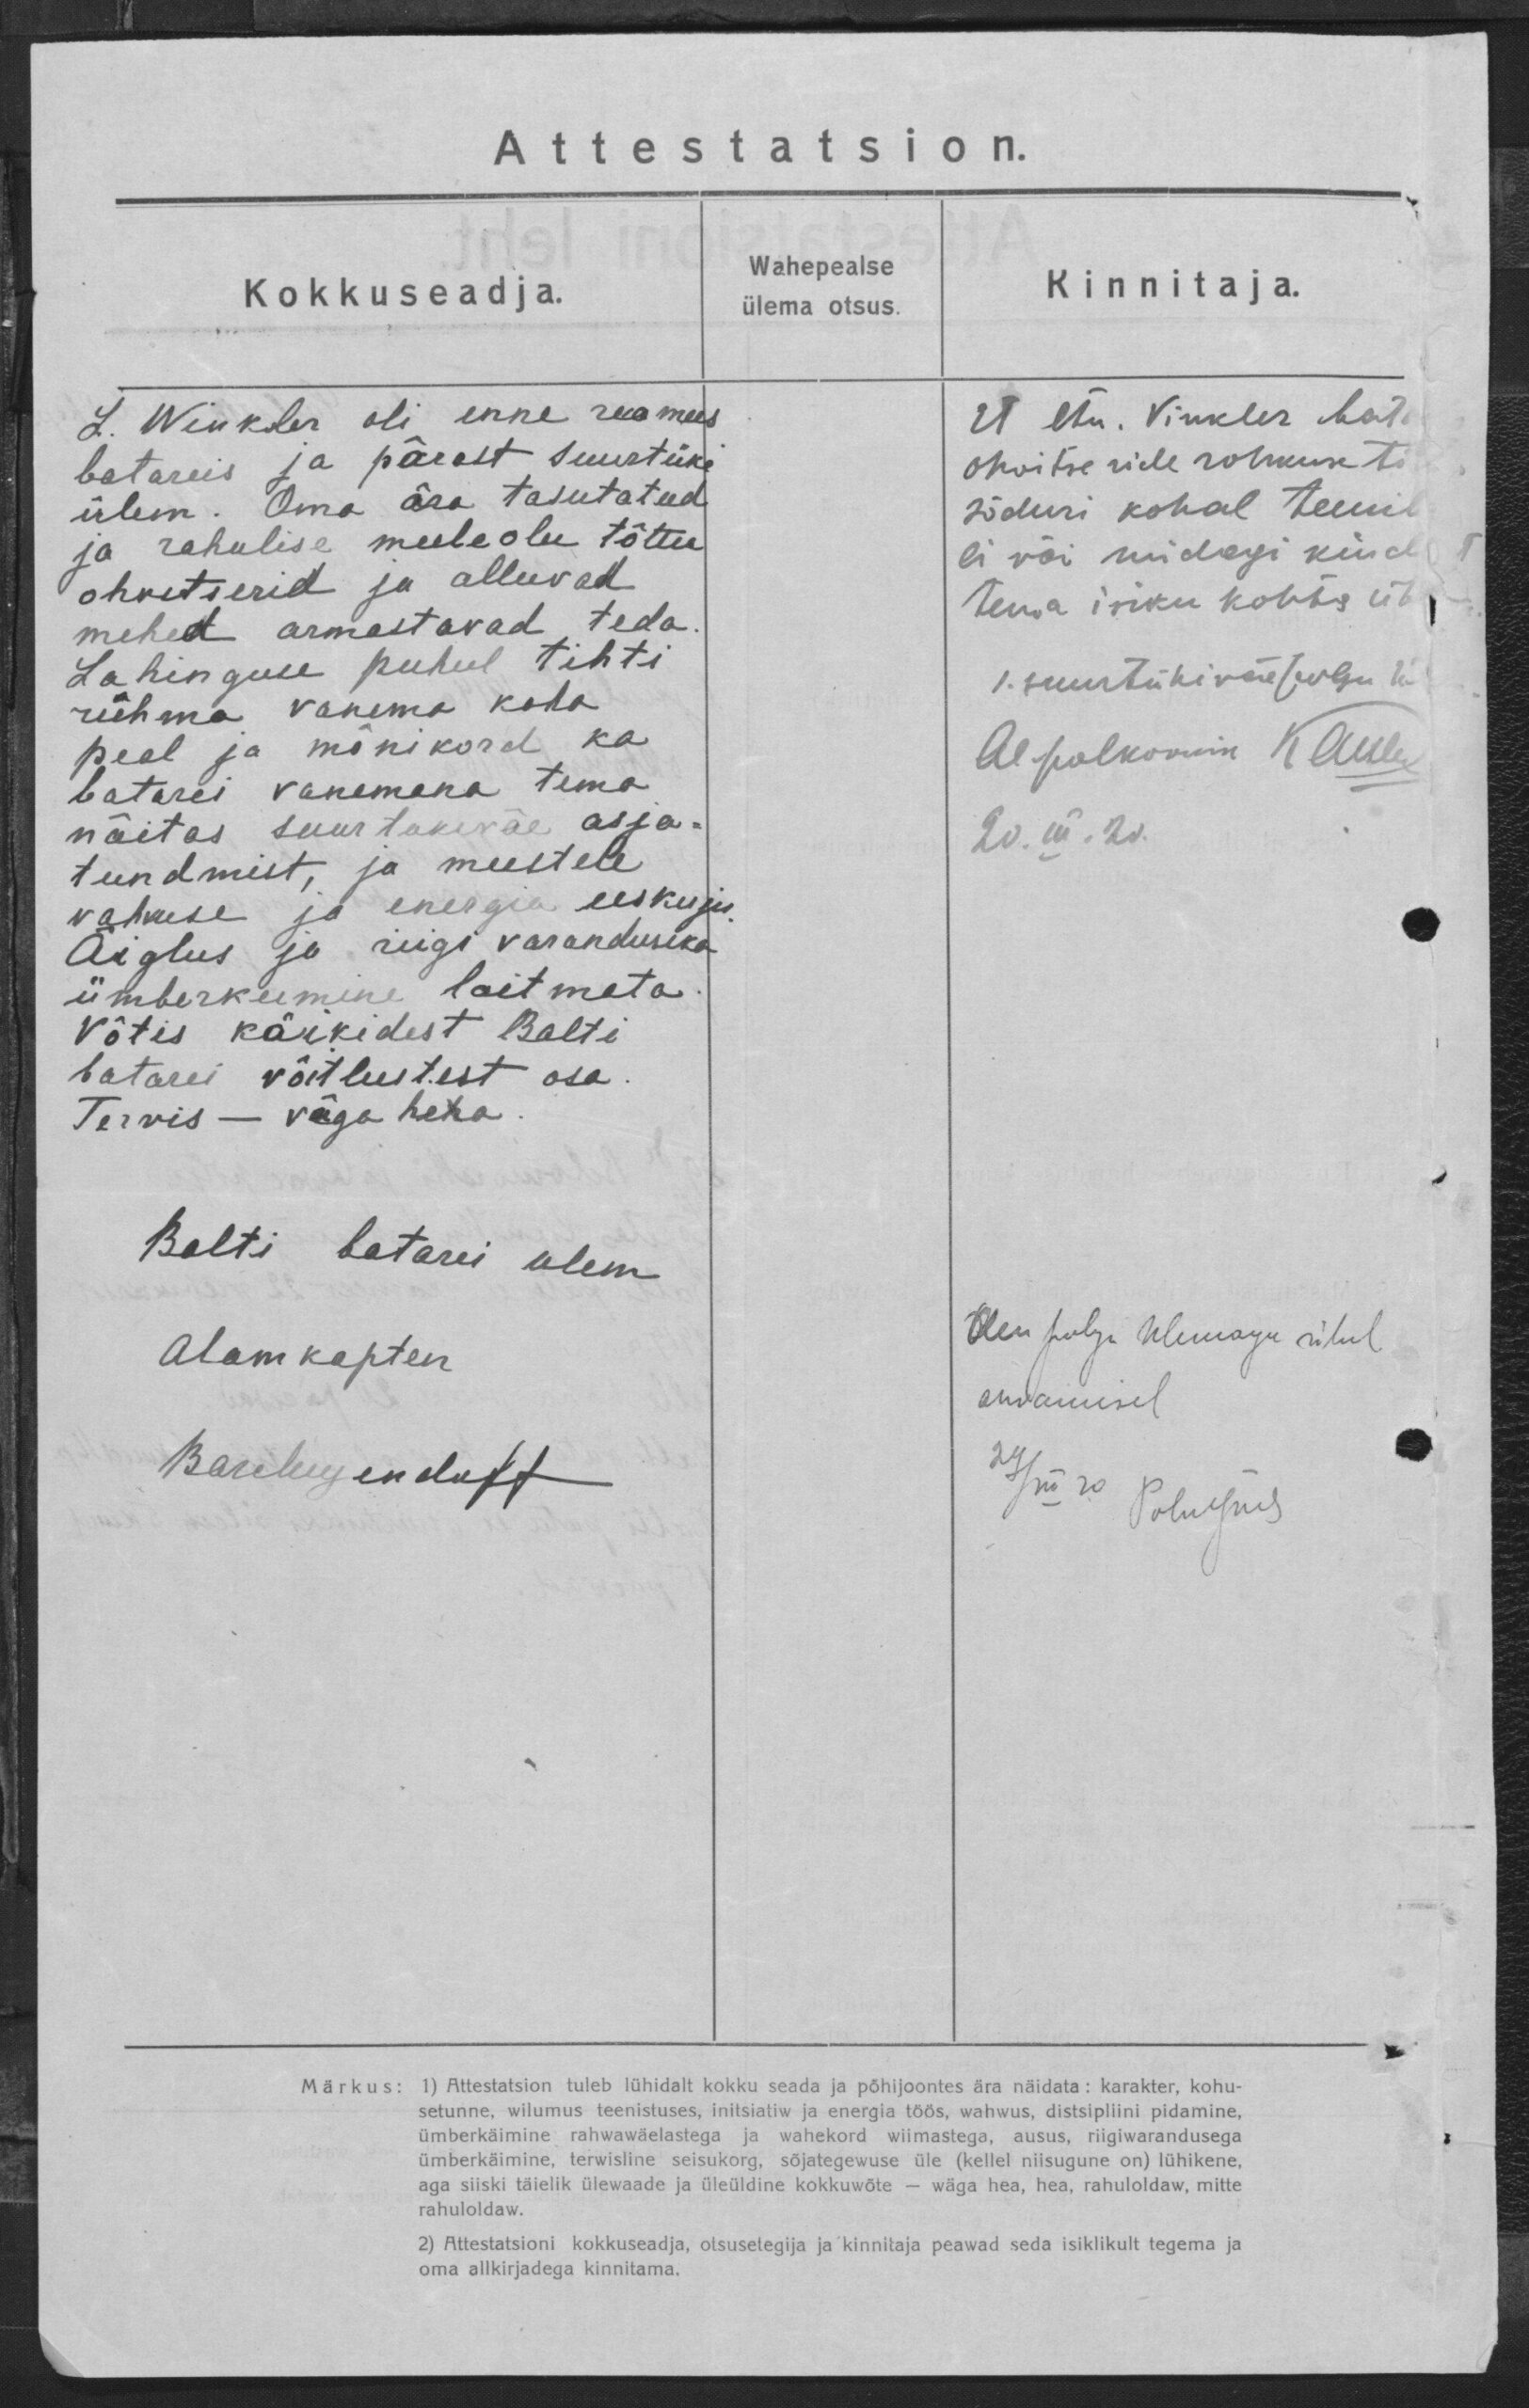 Attestatsion.
Kokkuseadja.
Wahepealse
ülema otsus.
Kinnitaja.
L. Winkler oli enne reamees
batareis ja pärast suurtüki
ülem. Oma ära tasutatud
ja rahulise meeleolu tõttu
ohvitserid ja alluvad
mehed armastavad teda.
Lahinguse puhul tihti
rühma vanema koha
peal ja mõnikord ka
batarei vanemana tema
näitas suurtukeväe asja-
tundmist, ja meestele
vahvuse ja energia eeskuju.
Äiglus ja riigi varanduseka
ümberkeemine laitmata.
Võtis käikidest Balti
batarei võitlustest osa.
Tervis — väga hea.
Balti batarei ulem
Alamkapten
Et ltn. Vinkler
ohvitseride rohkuse
sõduri kohal
li või midagi
tema isiku kohta
1. suurtükiväepolgu
Al. polkovnik
20. III. 20.
Olen polgu ülemaga ühel
arvamisel
29/III 20
Märkus: 1) Attestatsion tuleb lühidalt kokku seada ja põhijoontes ära näidata: karakter, kohu-
setunne, wilumus teenistuses, initsiatiw ja energia töös, wahwus, distsipliini pidamine,
ümberkäimine rahwawäelastega ja wahekord wiimastega, ausus, riigiwarandusega
ümberkäimine, terwisline seisukorg, sõjategewuse üle (kellel niisugune on) lühikene,
aga siiski täielik ülewaade ja üleüldine kokkuwõte — wäga hea, hea, rahuloldaw, mitte
rahuloldaw.
2) Attestatsioni kokkuseadja, otsusetegija ja kinnitaja peawad seda isiklikult tegema ja
oma allkirjadega kinnitama.